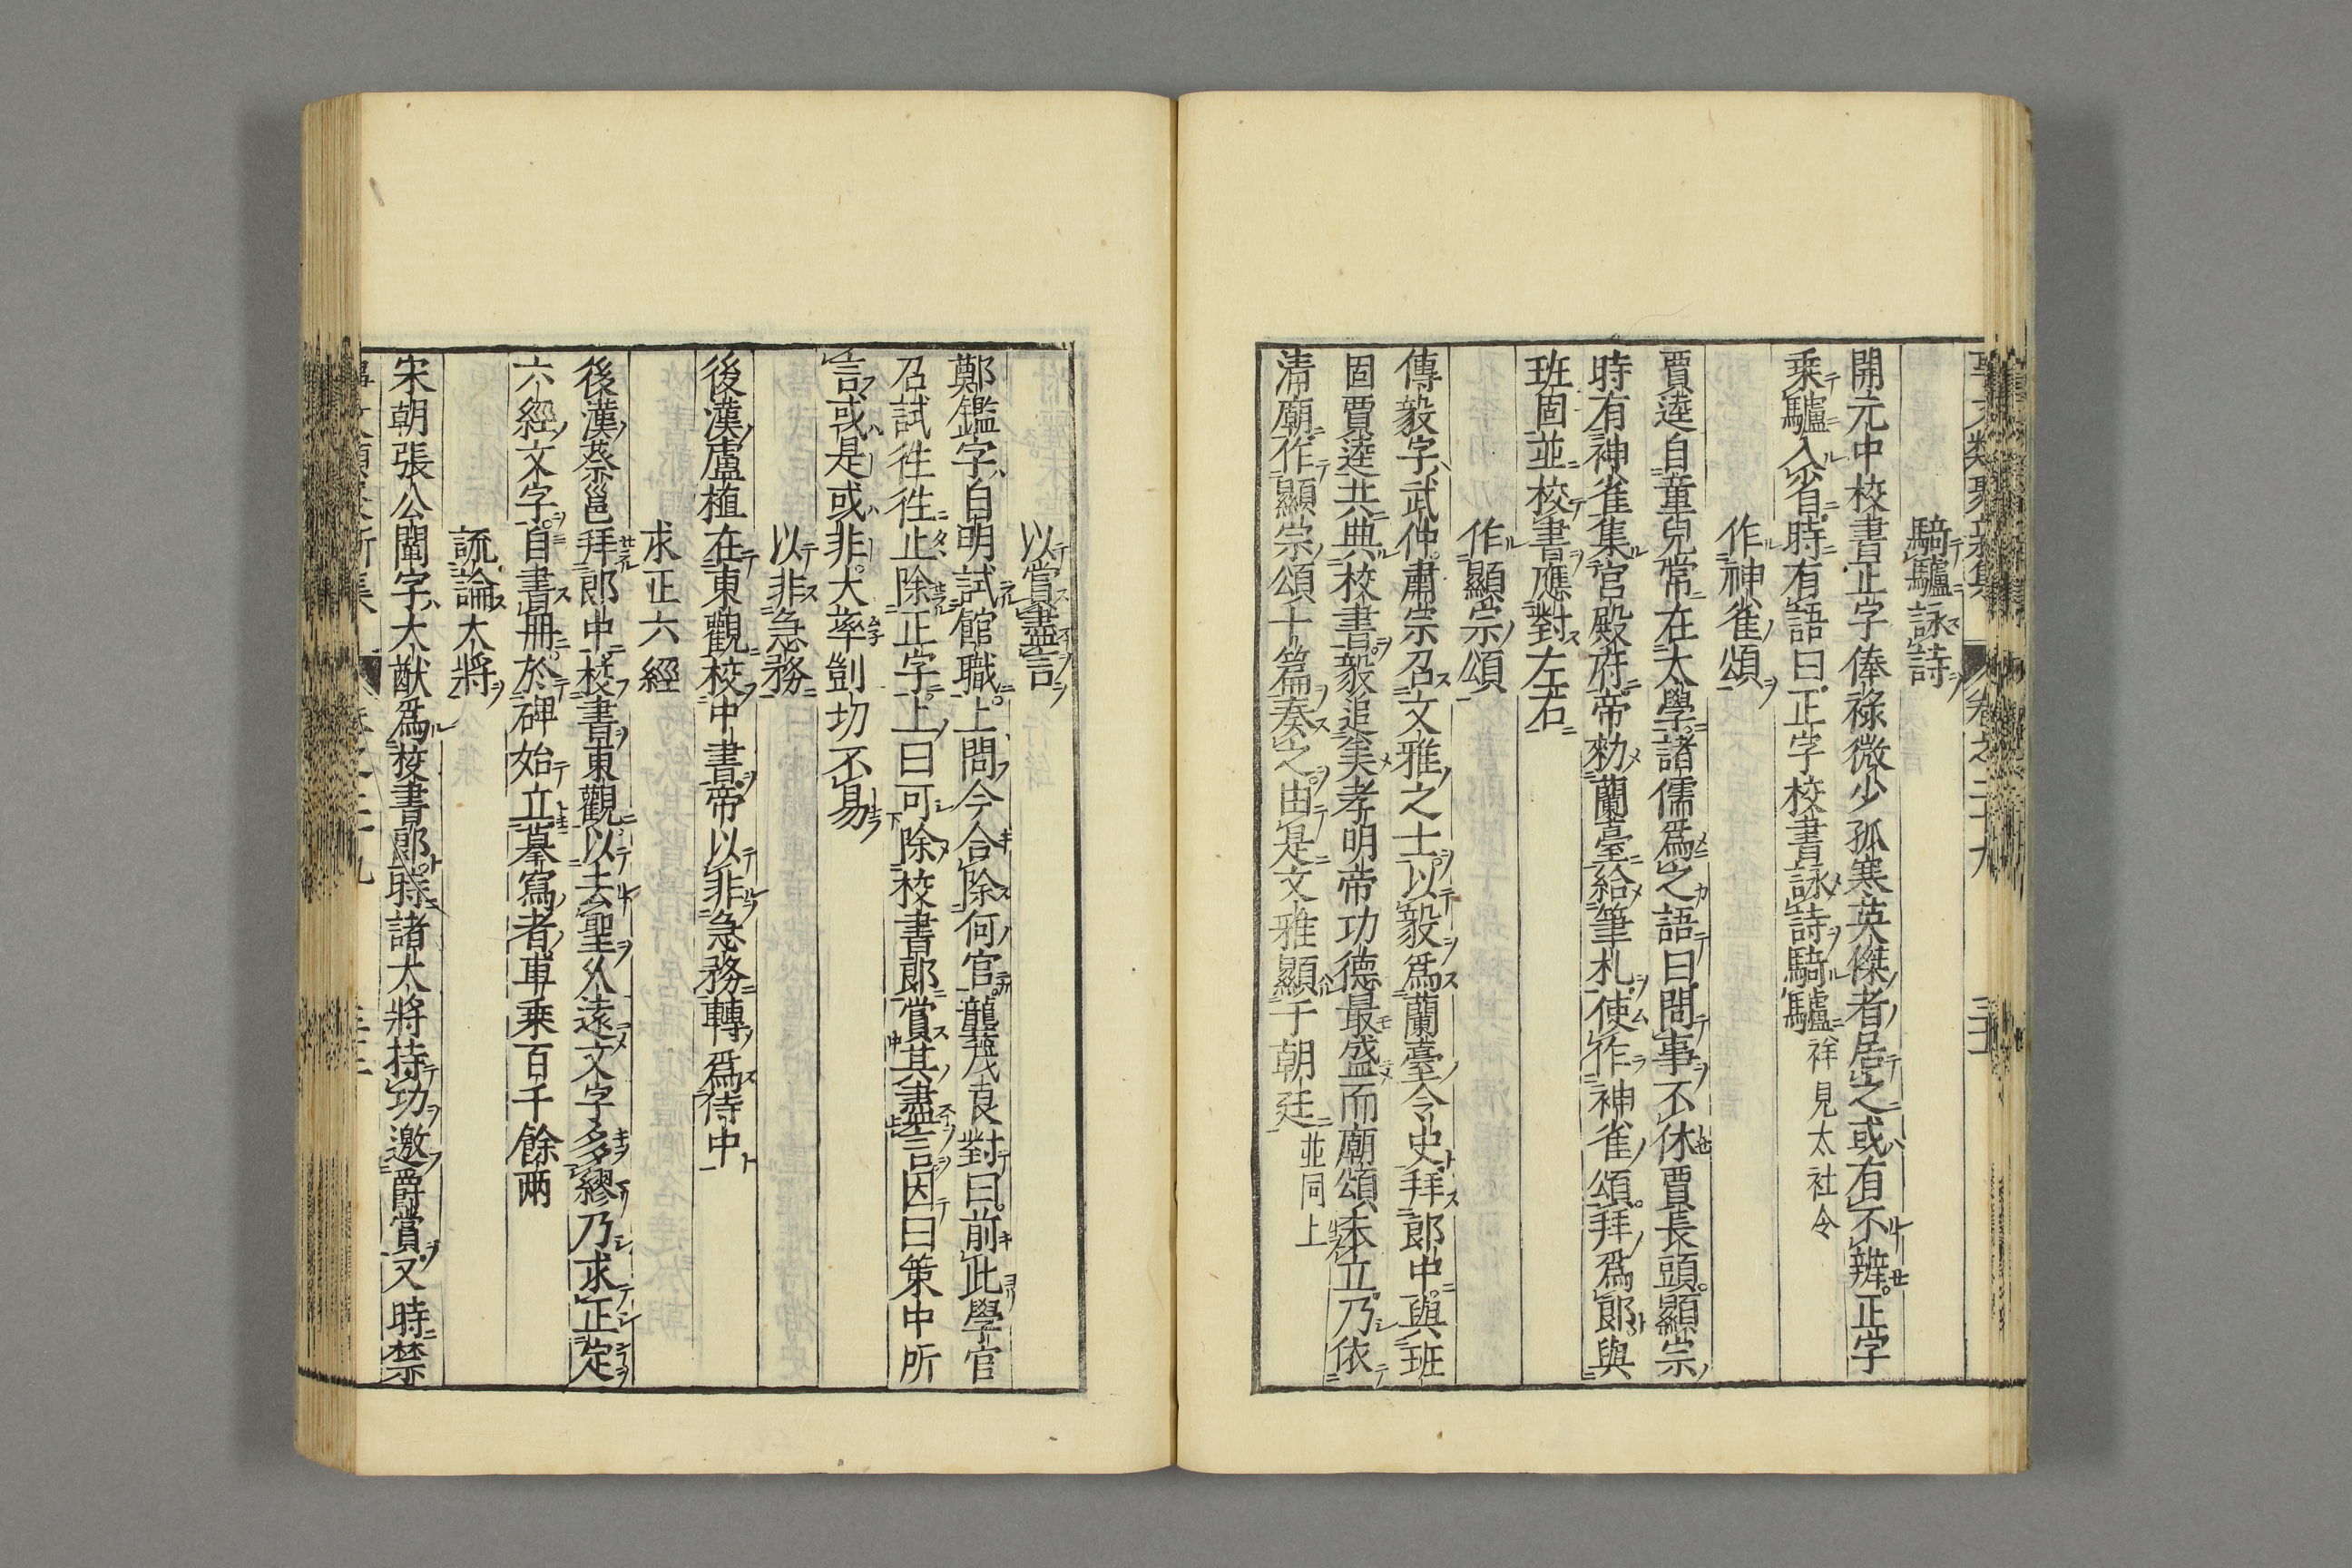 騎驢詠詩
開元中校書正字俸祿微少孤寒英傑者居之或有不辨正字
乗驢入省時有語曰正字校書詠詩騎驢祥見太社令
作神雀頌
賈逵自童兒常在太學諸儒爲之語曰問事不休賈長頭顯宗
時有神雀集官殿府帝勑蘭臺給筆札使作神雀頌拜爲郎與
班固並校書應對左右
作顯宗頌
傅毅字武仲肅宗召文雅之士以毅爲蘭臺令史拜郎中與班
固賈逵共典校書毅追美孝明帝功德最盛而廟頌未立乃依
清廟作顯宗頌十篇奏之由是文雅顯千朝廷並同上
以賞盡言
鄭鑑字自明試館職上問今合除何官龔茂良對曰前此學官
召試往往止除正字上曰可除校書郎賞其盡言因曰策中所
言或是或非大率剴切不易
以非急務
後漢盧植在東觀校中書帝以非急務轉爲侍中
求正六經
後漢蔡邕拜郎中校書東觀以去聖久遠文字多繆乃求正定
六經文字自書冊於碑始立摹寫者車乗百千餘兩
疏論大將
宋朝張公闡字大猷爲校書郎時諸大將持功邀爵賞又時禁